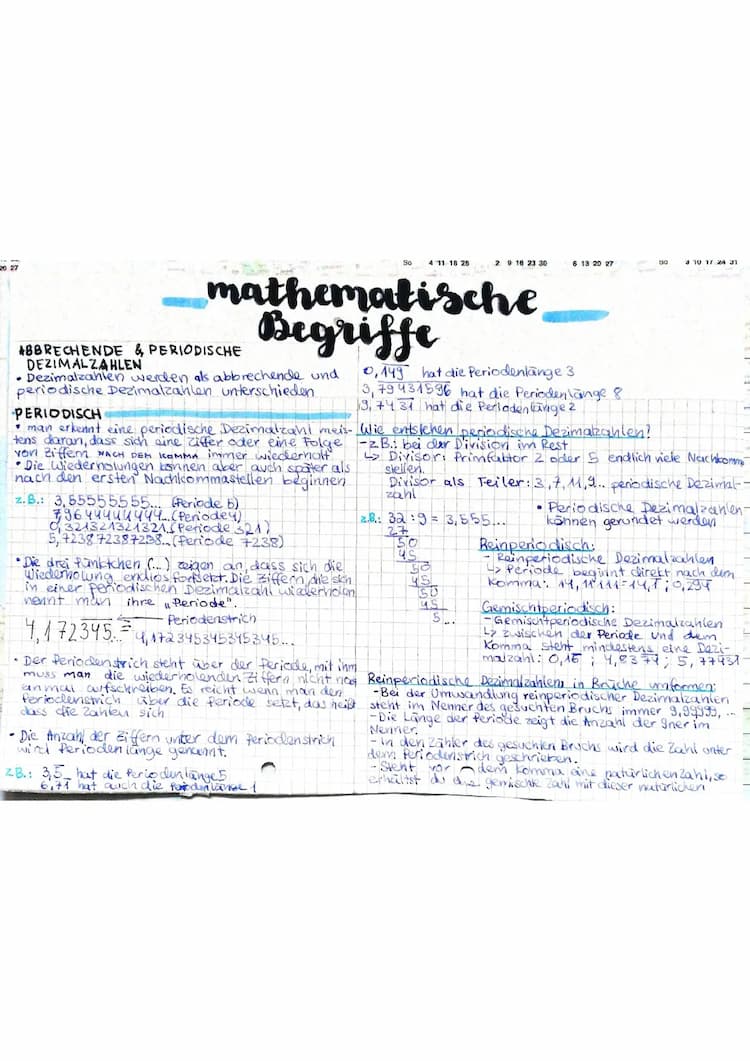 20 27
So 4 11 18 25 2 9 16 23 30 6 13 20 27 So 3 10 17 24 31
mathematische
Begriffe
ABBRECHENDE & PERIODISCHE
DEZIMALZAHLEN
• Dezimalzahlen werden als abbrechende und
periodische Dezimalzahlen unterschieden
PERIODISCH
• man erkennt eine periodische Dezimalzahl meis-
tens daran, dass sich eine Ziffer oder eine Folge
von Ziffern NACH DEM KOMMA immer wiederholt
• Die Wiederholungen können aber auch später als
nach den ersten Nachkommastellen beginnen
z.B.: 3,55555555... (Periode 5)
7,9644444444... (Periode 4)
0,321321321321 (Periode 321)
5,723872387238... (Periode 7238)
• Die drei Pünktchen (...) zeigen an, dass sich die
Wiederholung endlos fortsetzt. Die Ziffern, die sich
in einer periodischen Dezimalzahl wiederholen
nennt man ihre "Periode".
Periodenstrich
4,172345... = 4,172345345345345...
• Der Periodenstrich steht über der Periode, mit ihm
muss man die wiederholenden Ziffern nicht noch
einmal aufschreiben. Es reicht wenn man den
Periodenstrich über die Periode setzt, das heißt
dass die Zahlen sich
• Die Anzahl der Ziffern unter dem Periodenstrich
wird Periodenlänge genannt.
z.B.: 3,5̅ hat die Periodenlänge 5
6,71 hat auch die Periodenlänge 1
0,1̅4̅9̅ hat die Periodenlänge 3
3,79431596 hat die Periodenlänge 8
9,7431 hat die Periodenlänge 2
Wie entstehen periodische Dezimalzahlen?
- z.B.: bei der Division im Rest
↳ Divisor: Primfaktor 2 oder 5 endlich viele Nachkomma
stellen.
Divisor als Teiler: 3,7,11,9... periodische Dezimal-
zahl
• Periodische Dezimalzahlen
können gerundet werden
z.B.: 32 : 9 = 3,555...
27
50
45
50
45
50
45
5...
Reinperiodisch:
- Reinperiodische Dezimalzahlen
↳ Periode beginnt direkt nach dem
Komma: 14,11111=14,1 ; 0,294
Gemischtperiodisch:
- Gemischtperiodische Dezimalzahlen
↳ zwischen der Periode und dem
Komma steht mindestens eine Dezi-
malzahl: 0,15 ; 4,8374 ; 5,77931
Reinperiodische Dezimalzahlen in Brüche umformen:
- Bei der Umwandlung reinperiodischer Dezimalzahlen
steht im Nenner des gesuchten Bruchs immer 9,99,999,...
- Die Länge der Periode zeigt die Anzahl der 9ner im
Nenner.
- In den Zähler des gesuchten Bruchs wird die Zahl unter
dem Periodenstrich geschrieben.
- Steht vor dem Komma eine natürlichen Zahl, so
erhältst du eine gemischte Zahl mit dieser natürlichen